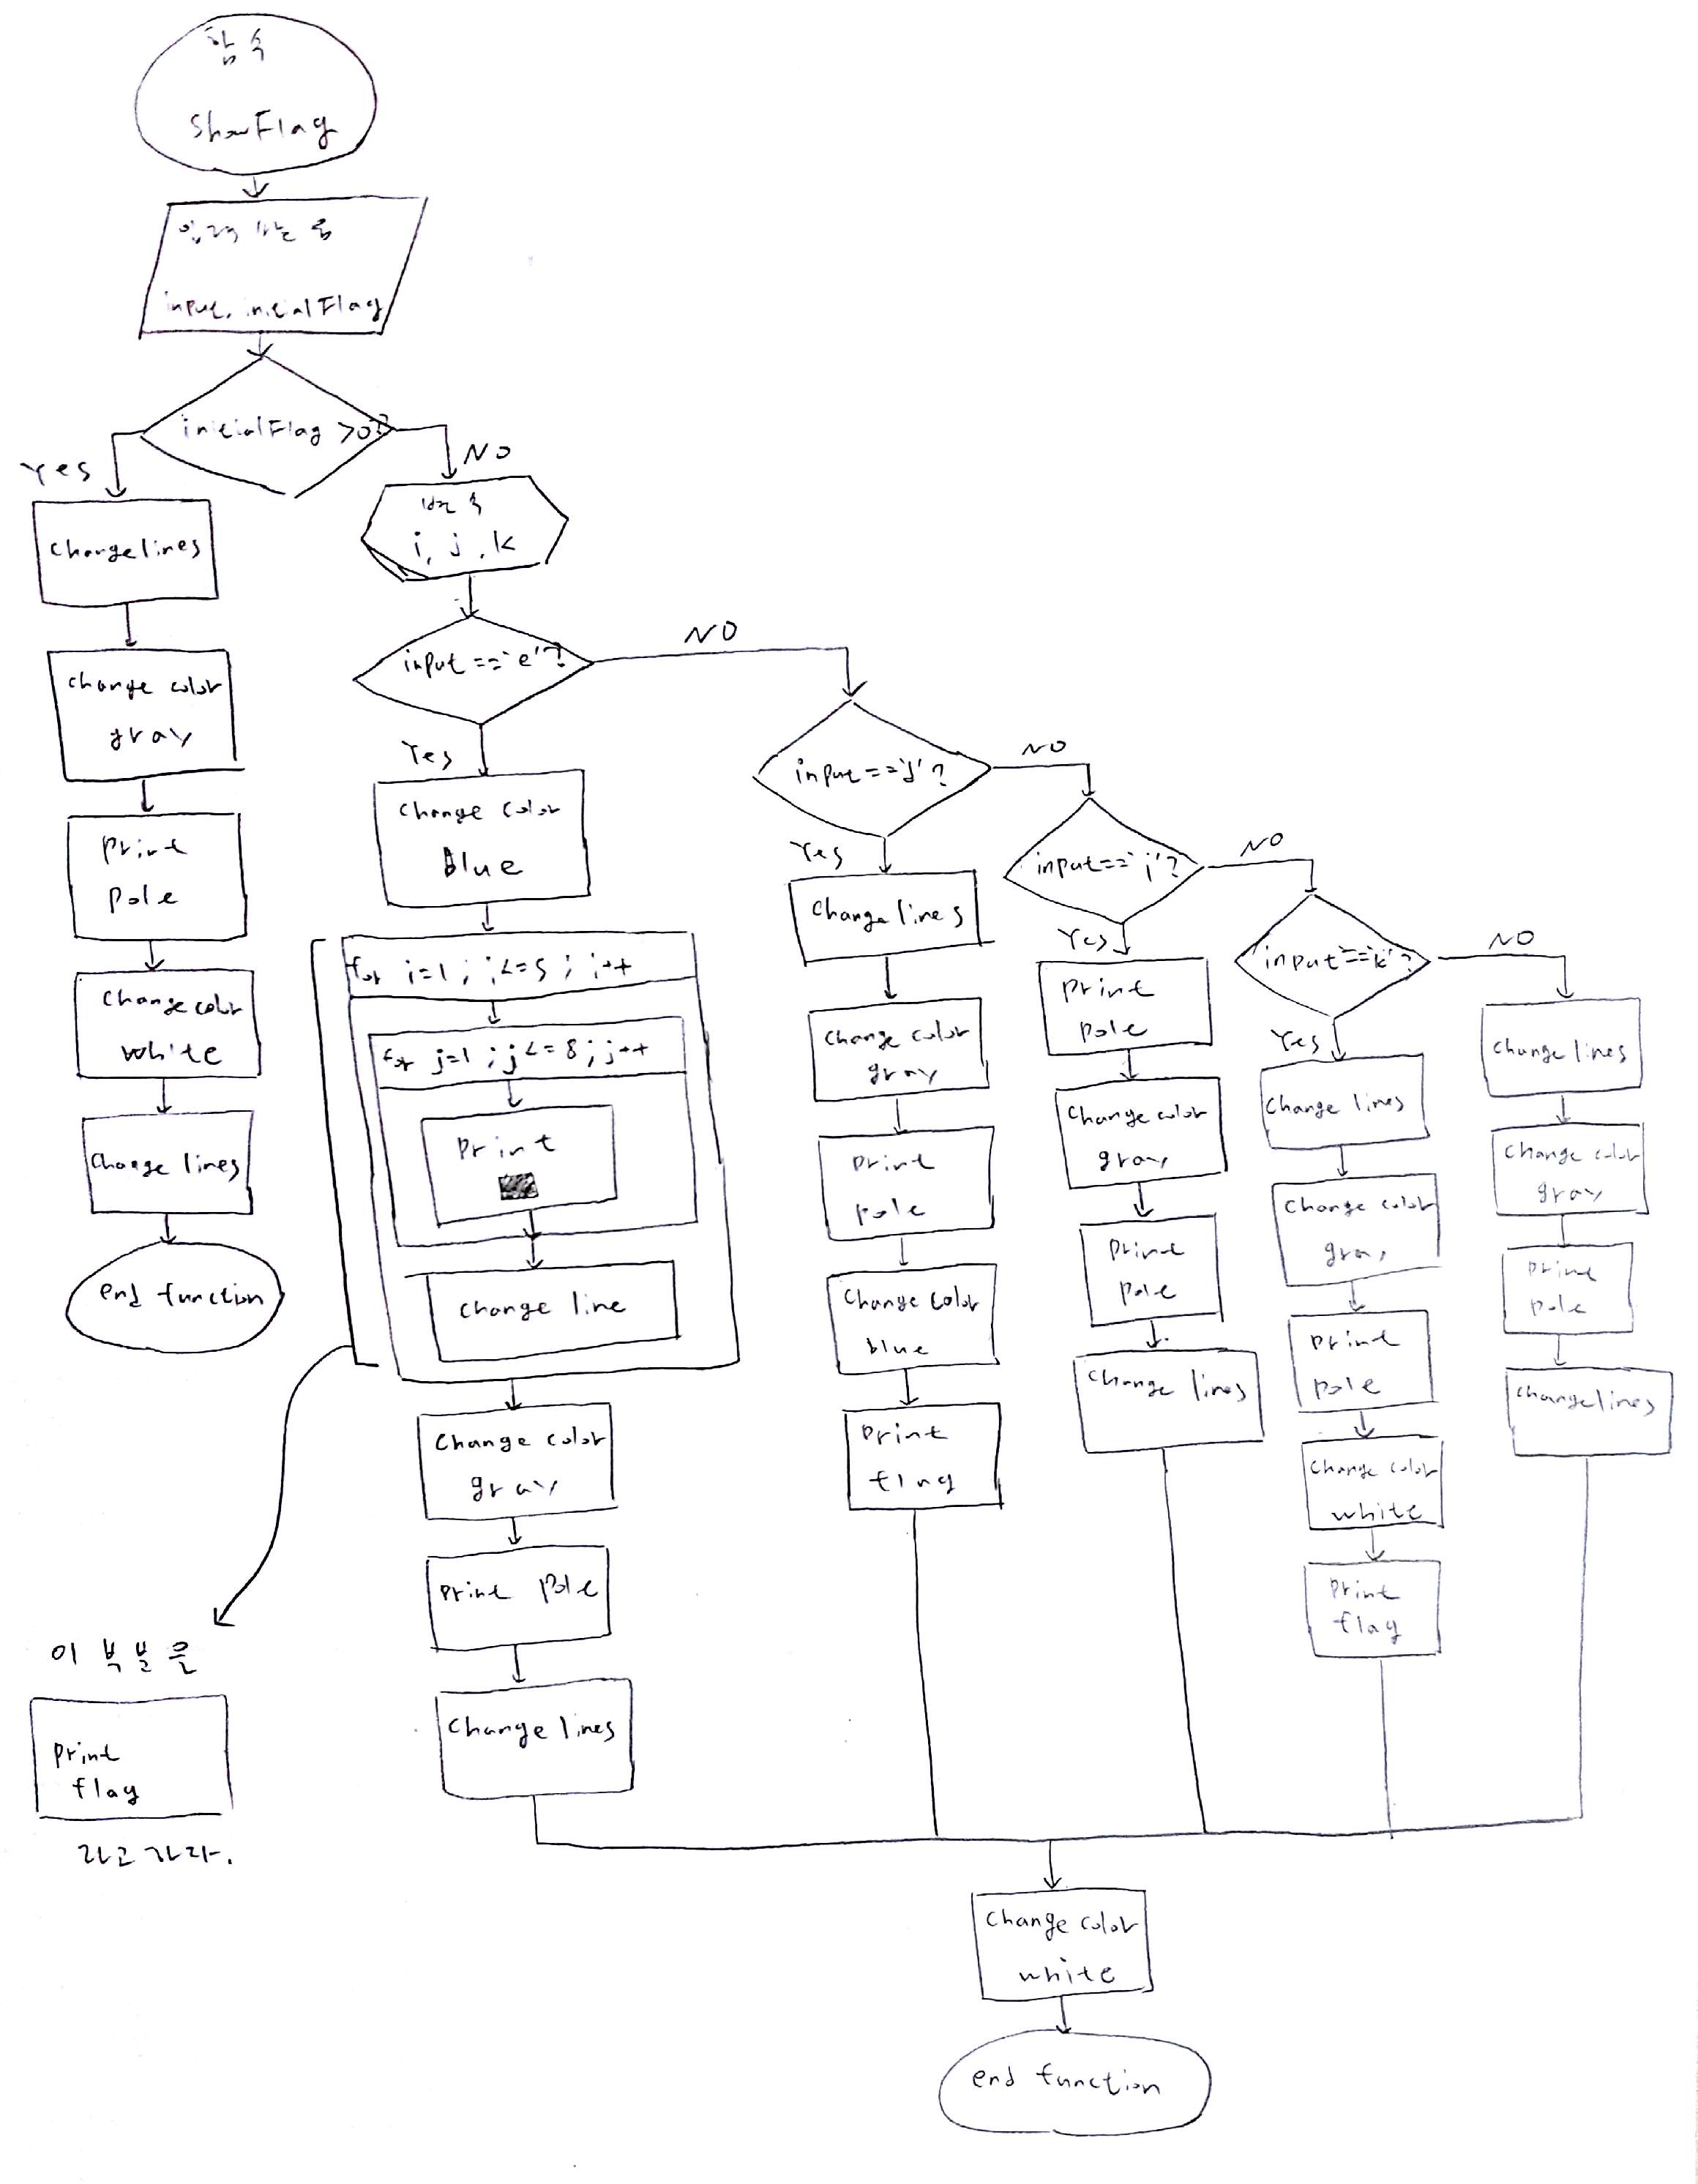 함수
ShowFlag
입력 받는 중
input, initialFlag
initialFlag >0?
Yes
NO
Change lines
Change color
gray
Print
pole
Change color
white
Change lines
end function
변수
i, j, k
input == 'e'?
NO
Yes
Change color
blue
for i=1 ; i<=5 ; i++
for j=1 ; j<=8 ; j++
Print
Change line
Change color
gray
Print pole
Change lines
이 부분을
Print
flag
라고 하라.
input == 'd'?
NO
Yes
Change lines
Change color
gray
Print
pole
Change color
blue
Print
flag
input == 'j'?
NO
Yes
Print
pole
Change color
gray
Print
pole
Change lines
input == 'k'?
NO
Yes
Change lines
Change color
gray
Print
pole
Change color
white
Print
flag
Change lines
Change color
gray
Print
pole
Change lines
Change color
white
end function